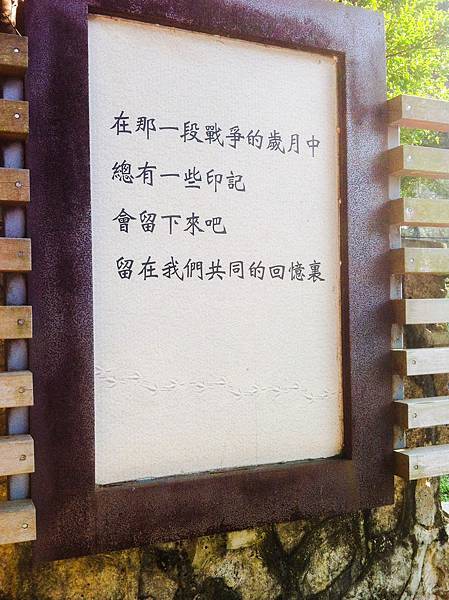 在那一段戰爭的歲月中
總有一些印記
會留下來吧
留在我們共同的回憶裏